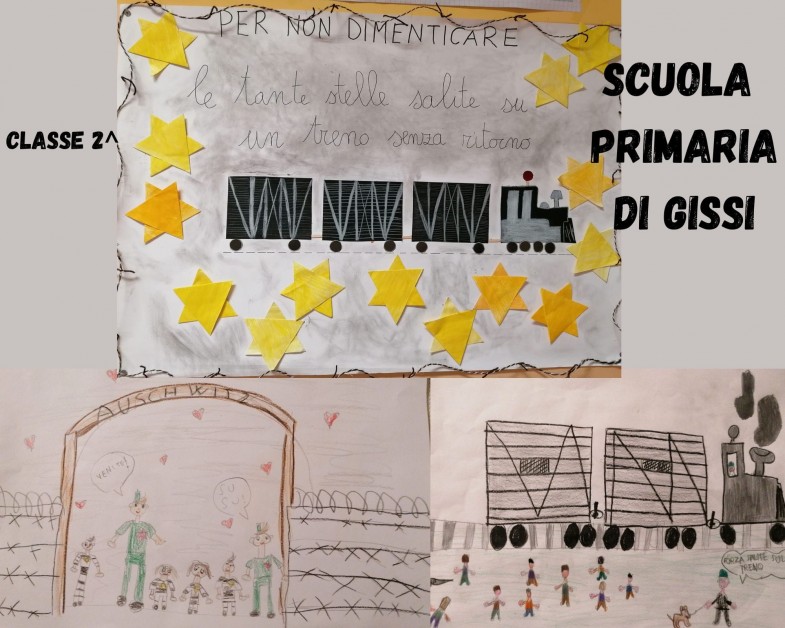 PER NON DIMENTICARE
le tante stelle salite su
un treno senza ritorno
CLASSE 2^
SCUOLA
PRIMARIA
DI GISSI
AUSCHWITZ
VENITE!